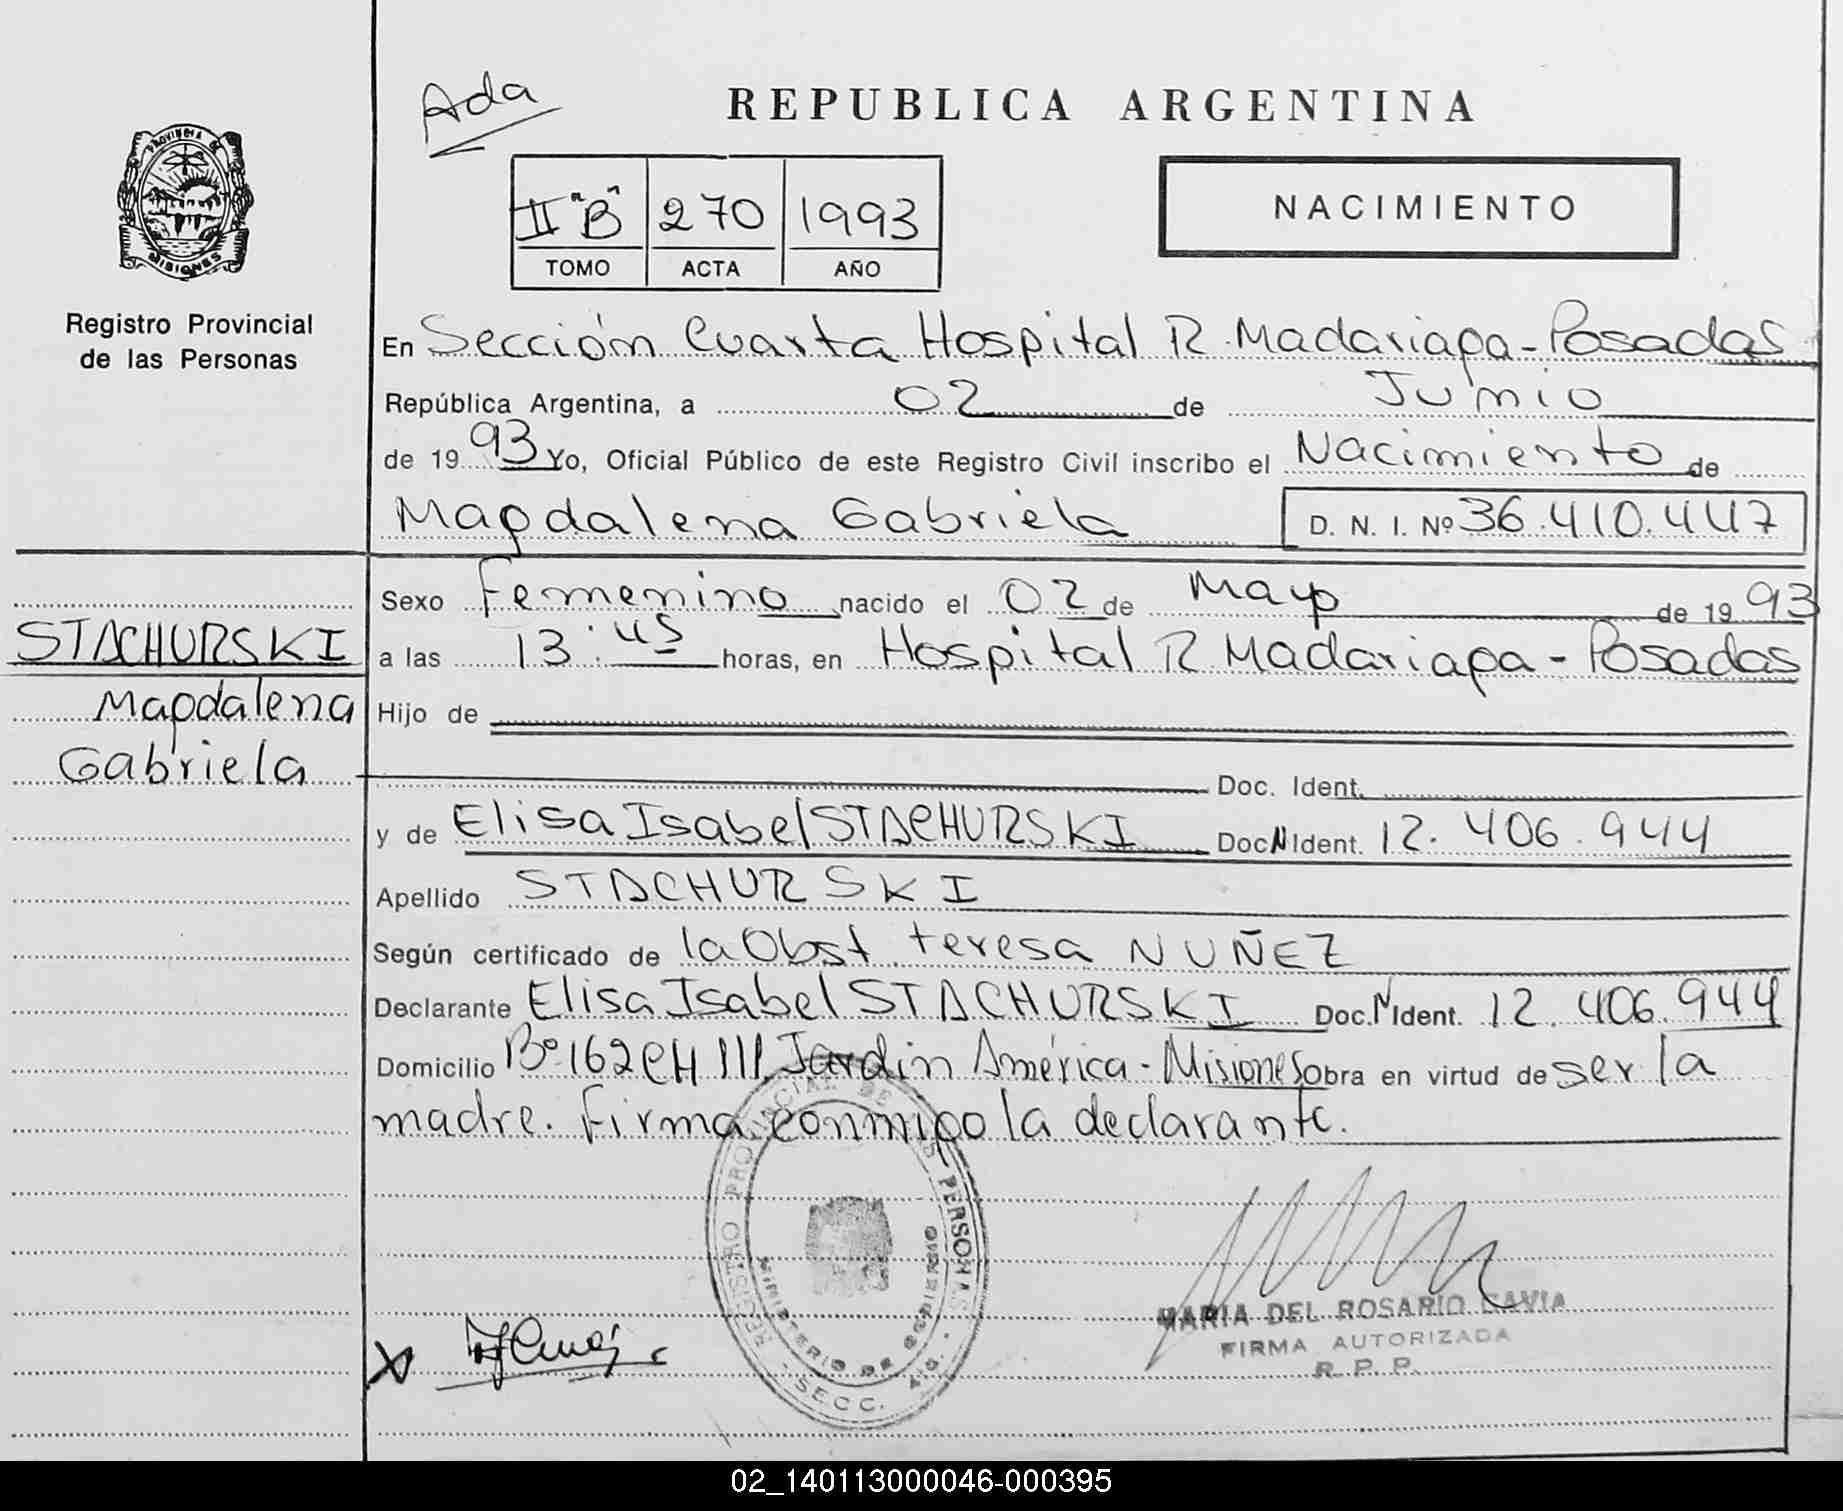 Ada
REPUBLICA ARGENTINA
PROVINCIA DE
MISIONES
II "B" 270 1993
TOMO ACTA AÑO
NACIMIENTO
Registro Provincial
de las Personas
En Sección Cuarta Hospital R. Madariaga - Posadas
República Argentina, a 02 de Junio
de 1993 Yo, Oficial Público de este Registro Civil inscribo el Nacimiento de
Magdalena Gabriela D. N. I. Nº 36.410.447
Sexo Femenino nacido el 02 de Mayo de 1993
a las 13:45 horas, en Hospital R. Madariaga - Posadas
Hijo de
Doc. Ident.
y de Elisa Isabel STACHURSKI Doc N Ident. 12.406.944
Apellido STACHURSKI
Según certificado de la Obst. teresa NUÑEZ
Declarante Elisa Isabel STACHURSKI Doc. N Ident. 12.406.944
Domicilio Bº 162 CH III Jardin América - Misiones obra en virtud de ser la
madre. Firma conmigo la declarante.
STACHURSKI
Magdalena
Gabriela
REGISTRO PROVINCIAL DE LAS PERSONAS
MINISTERIO DE GOBIERNO
SECC. 4ta.
MARIA DEL ROSARIO GAVIA
FIRMA AUTORIZADA
R. P. P.
02_140113000046-000395